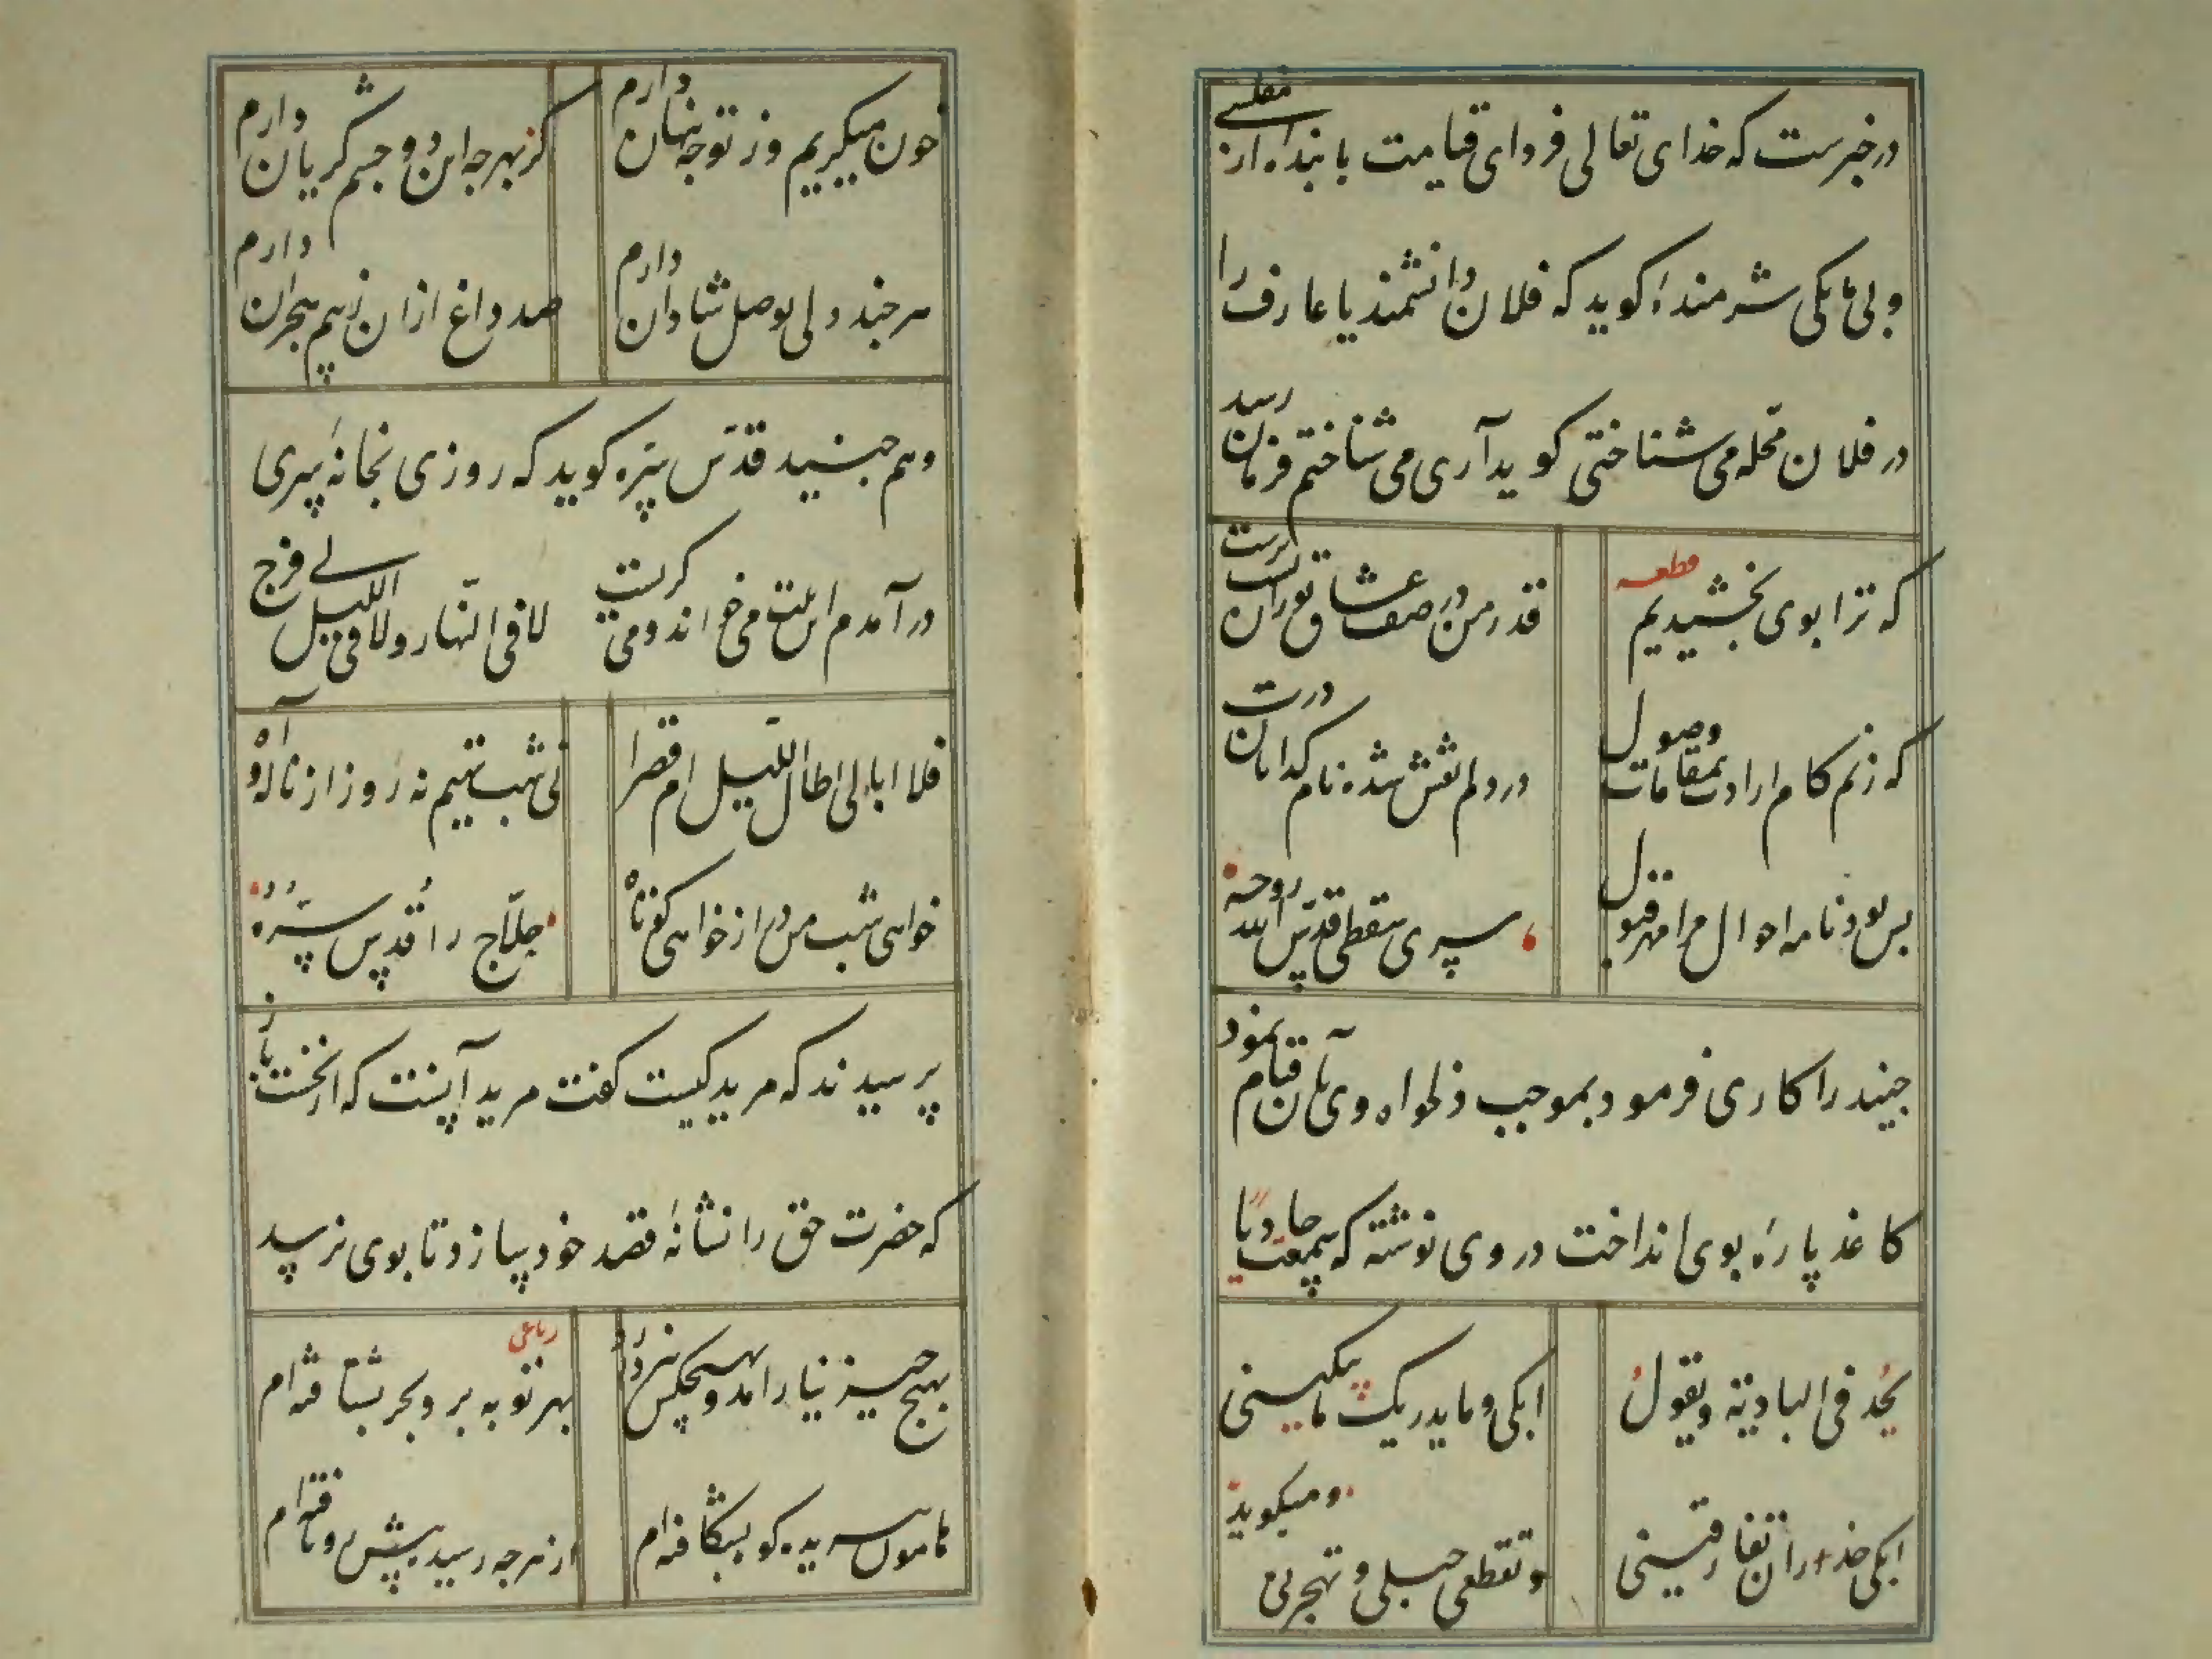 در خبرست که خدای تعالی فردای قیامت با بنده از مفلسی
و بی مایکی شرمنده کوید که فلان دانشمند یا عارف را
در فلان محله می شناختی کوید آری می شناختم فرمان رسد
که ترا بوی بخشیدیم
قطعه
قدر من در صف عشاق تو زان پست ترست
که زنم کام ارادت بمقامات وصول
در دلم نقش شده نام کدایان درت
بس بود نامه احوال مرا مهر قبول
سری سقطی قدس الله روحه
جنید را کاری فرمود بموجب دلخواه وی بآن قیام نمود
کاغذ پاره بوی انداخت در وی نوشته که سمعت حادیا
یحد فی البادیة ویقول
ابکی وما یدریک ما یبکینی
ابکی حذرا ان تفارقینی
وتقطعی حبلی وتهجرینی
ومیکوید
خون میکریم وز تو جه پنهان دارم
کز بهر جه این دو جشم کریان دارم
هر جند دلی بوصل شادان دارم
صد داغ ازان ز بیم هجران دارم
و هم جنید قدس سره کوید که روزی بخانه سری
در آمدم این بیت می خواند و می کریست
لا فی النهار ولا فی اللیل لی فرج
فلا ابالی اطال اللیل ام قصرا
نی شب تهیم نه روز از ناله و آه
خواهی شب من دراز خواهی کوتاه
حلاج را قدس سره
پرسیدند که مرید کیست کفت مرید آنست که از نخست باز
که حضرت حق را نشانه قصد خود سازد تا بوی نرسد
بهیج جیز نیارامد و بهیجکس نپردازد
رباعی
بهر تو به بر و بحر بشتافته ام
هامون بریده کوه بشکافته ام
از هرجه رسید پیش رو تافته ام